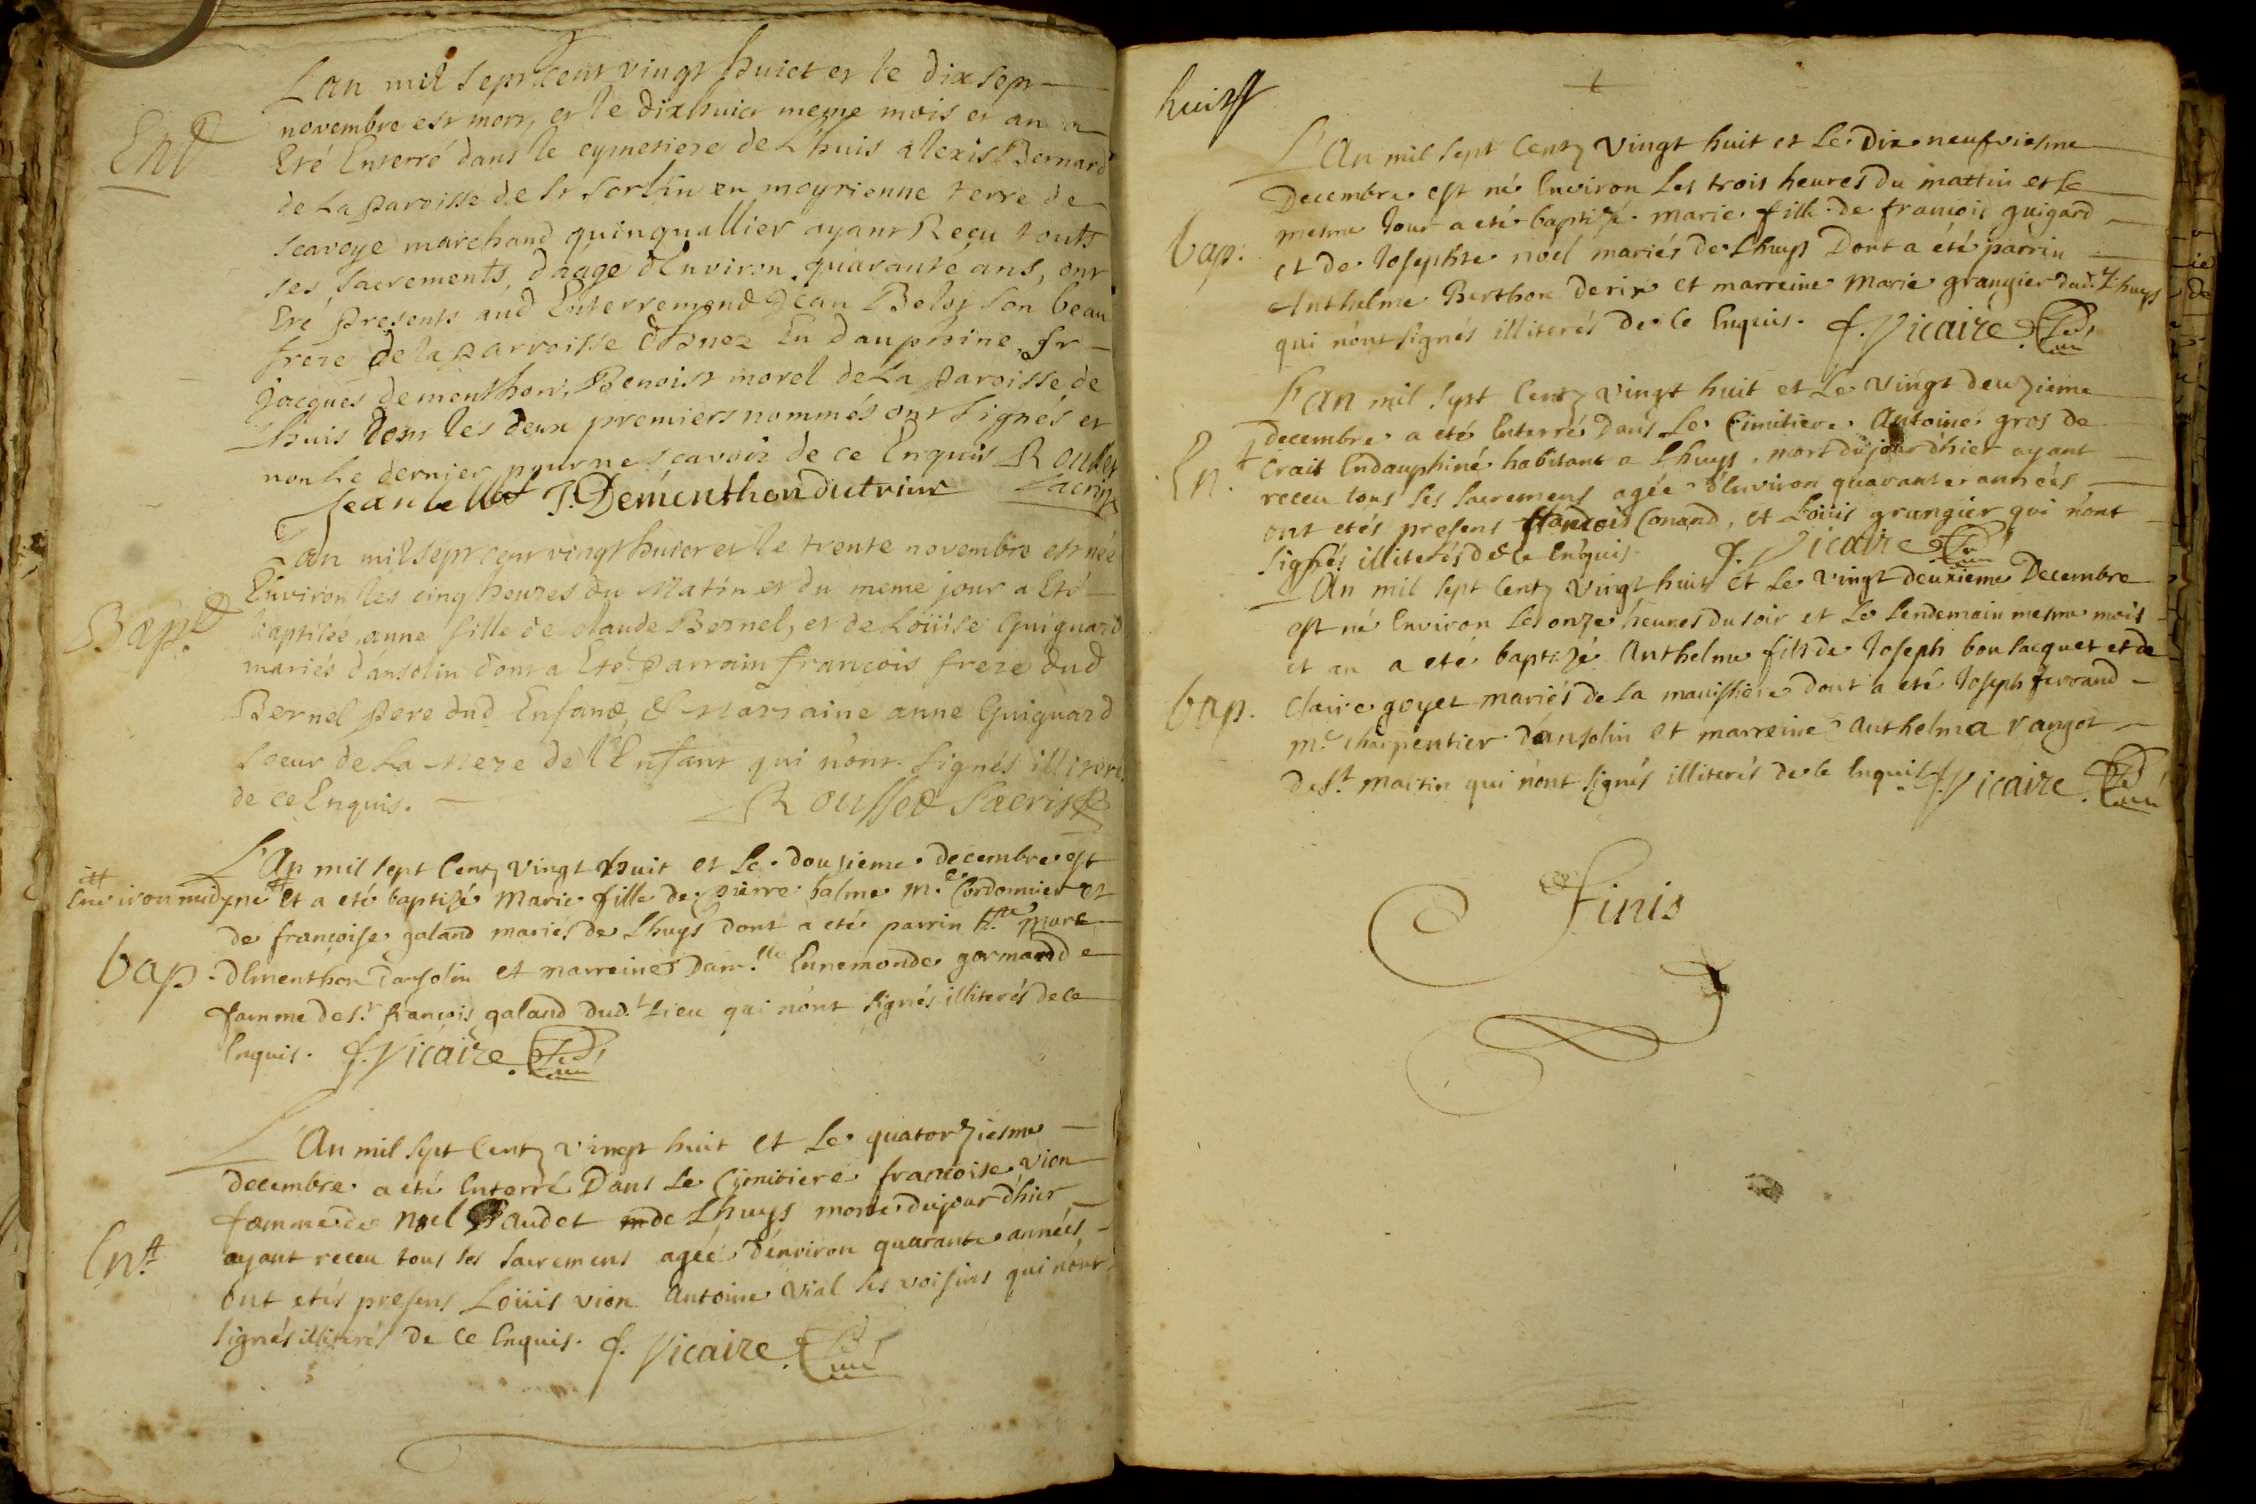 Lan mil sept Cent vingt huict et le dix sept
Ent novembre est mort, et le dixhuict meme mois et an a
Eté Enterré dans le cymetiere de Lhuis alexis Bernard
de La paroisse de st Sorlin en moyrienne terre de
scavoye marchand quinquallier ayant Reçu touts
ses sacrements, daage dEnviron quarante ans, ont
Eté presents aud Enterrement Jean Belot son beau
frere de la parroisse en dauphine, sr
Jacques dementhon, Benoist morel de La paroisse de
Lhuis dont les deux premiers nommés ont Signés et
non Le dernier pour ne scavoir de ce Enquis Rousset
Jean J. Dementhon Sacrist
Lan mil sept cent vingt huict et le trente novembre est née
Environ les cinq heures du Matin et du meme jour a Eté
Bapt baptisée anne fille de claude Bernel, et de Loüise Guiguard
mariés d'ansolin dont a Eté Parrain francois frere dud
Bernel pere dud Enfand, & Marraine anne Guiguard
soeur de La Mere de l'Enfant qui n'ont signés illiteres
de ce Enquis. Rousset Sacrist
L'An mil sept Cent vingt huit et Le douzieme decembre est
Environ midy né Et a eté baptizé Marie fille de pierre balme me. Cordonnier et
de francoise galand mariés de Lhuys dont a eté parrin marc
bap. dementhon dansolin et marreine dam.lle Ennemonde gormand de
famme de sr. francois galand dud.t Lieu qui n'ont signés illiterés de ce
Enquis. f. Vicaire
L'An mil sept Cent vingt huit et Le quatorziesme
decembre a eté Enterré Dans Le Cimitiere francoise vion
famme de noel de Lhuys morte dujourdhier
En.t ayant receu tous ses sacremens agée d'environ quarante années
ont etés presens Loüis vion Antoine vial ses voisins qui n'ont
signés illiterés de ce Enquis. f. Vicaire
huit
L'An mil sept Cent vingt huit et Le Dix neufviesme
Decembre est né Environ Les trois heures du mattin et Le
bap: mesme Jour a eté baptizé marie fille de francois guigard
et de Josephte noel mariés de Lhuys Dont a été parrin
Anthelme Berthon derix et marreine marie grangier dud.t Lhuys
qui n'ont signés illiterés de Ce Enquis. f. Vicaire
L'an mil sept Cent vingt huit et Le vingt deuzieme
decembre a eté Enterré Dans Le Cimitiere Antoine gros de
En.t Crait Endauphiné habitant a Lhuys. mort dujourdhier ayant
receu tous ses sacremens agée d'Environ quarante années
ont etés presens francois Conand, et Loüis grangier qui n'ont
signés illiterés de Ce Enquis. f. Vicaire
L'An mil sept Cent vingt huit et Le vingt deuxieme Decembre
est né Environ Les onze heures du soir et Le Lendemain mesme mois
et an a eté baptizé Anthelme fils de Joseph bon Jacquet et de
bap. Claire goyet mariés de La dont a eté Joseph ferrand
me. charpentier d'ansolin et marreine Anthelma vangot
de st. martin qui n'ont signés illiterés de Ce Enquis f. Vicaire
Finis